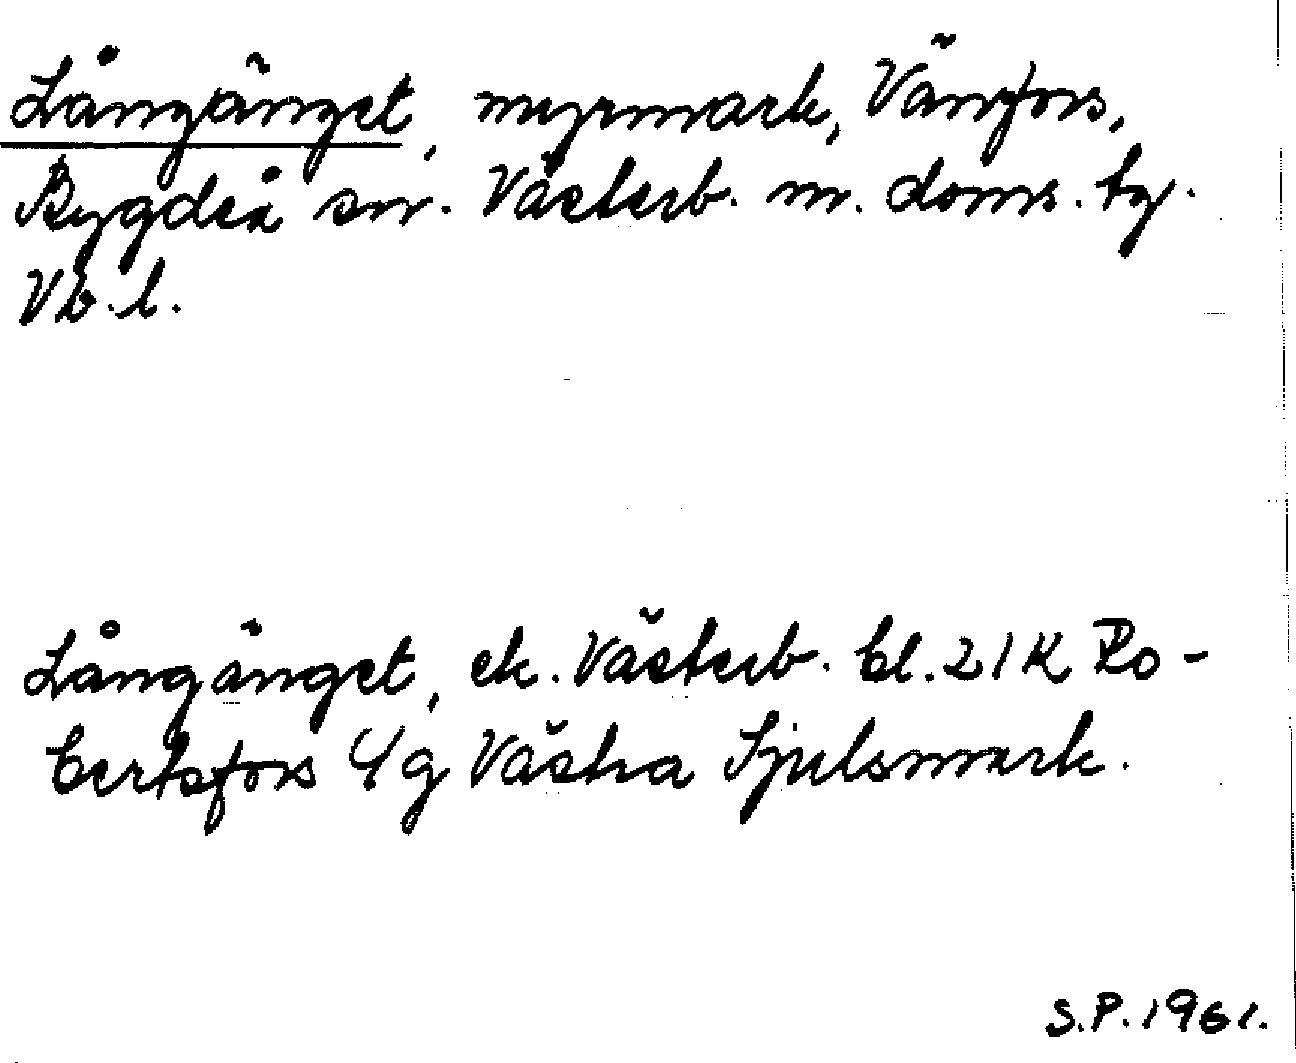 Långänget, myrmark, Vänfors,
Bygdeå sn. Västerb. m. doms. tg.
Vb. l.
Långänget, ek. Västerb. bl. 21 K Ro-
bertsfors 4 g Västra Sjulsmark.
S.P. 1961.